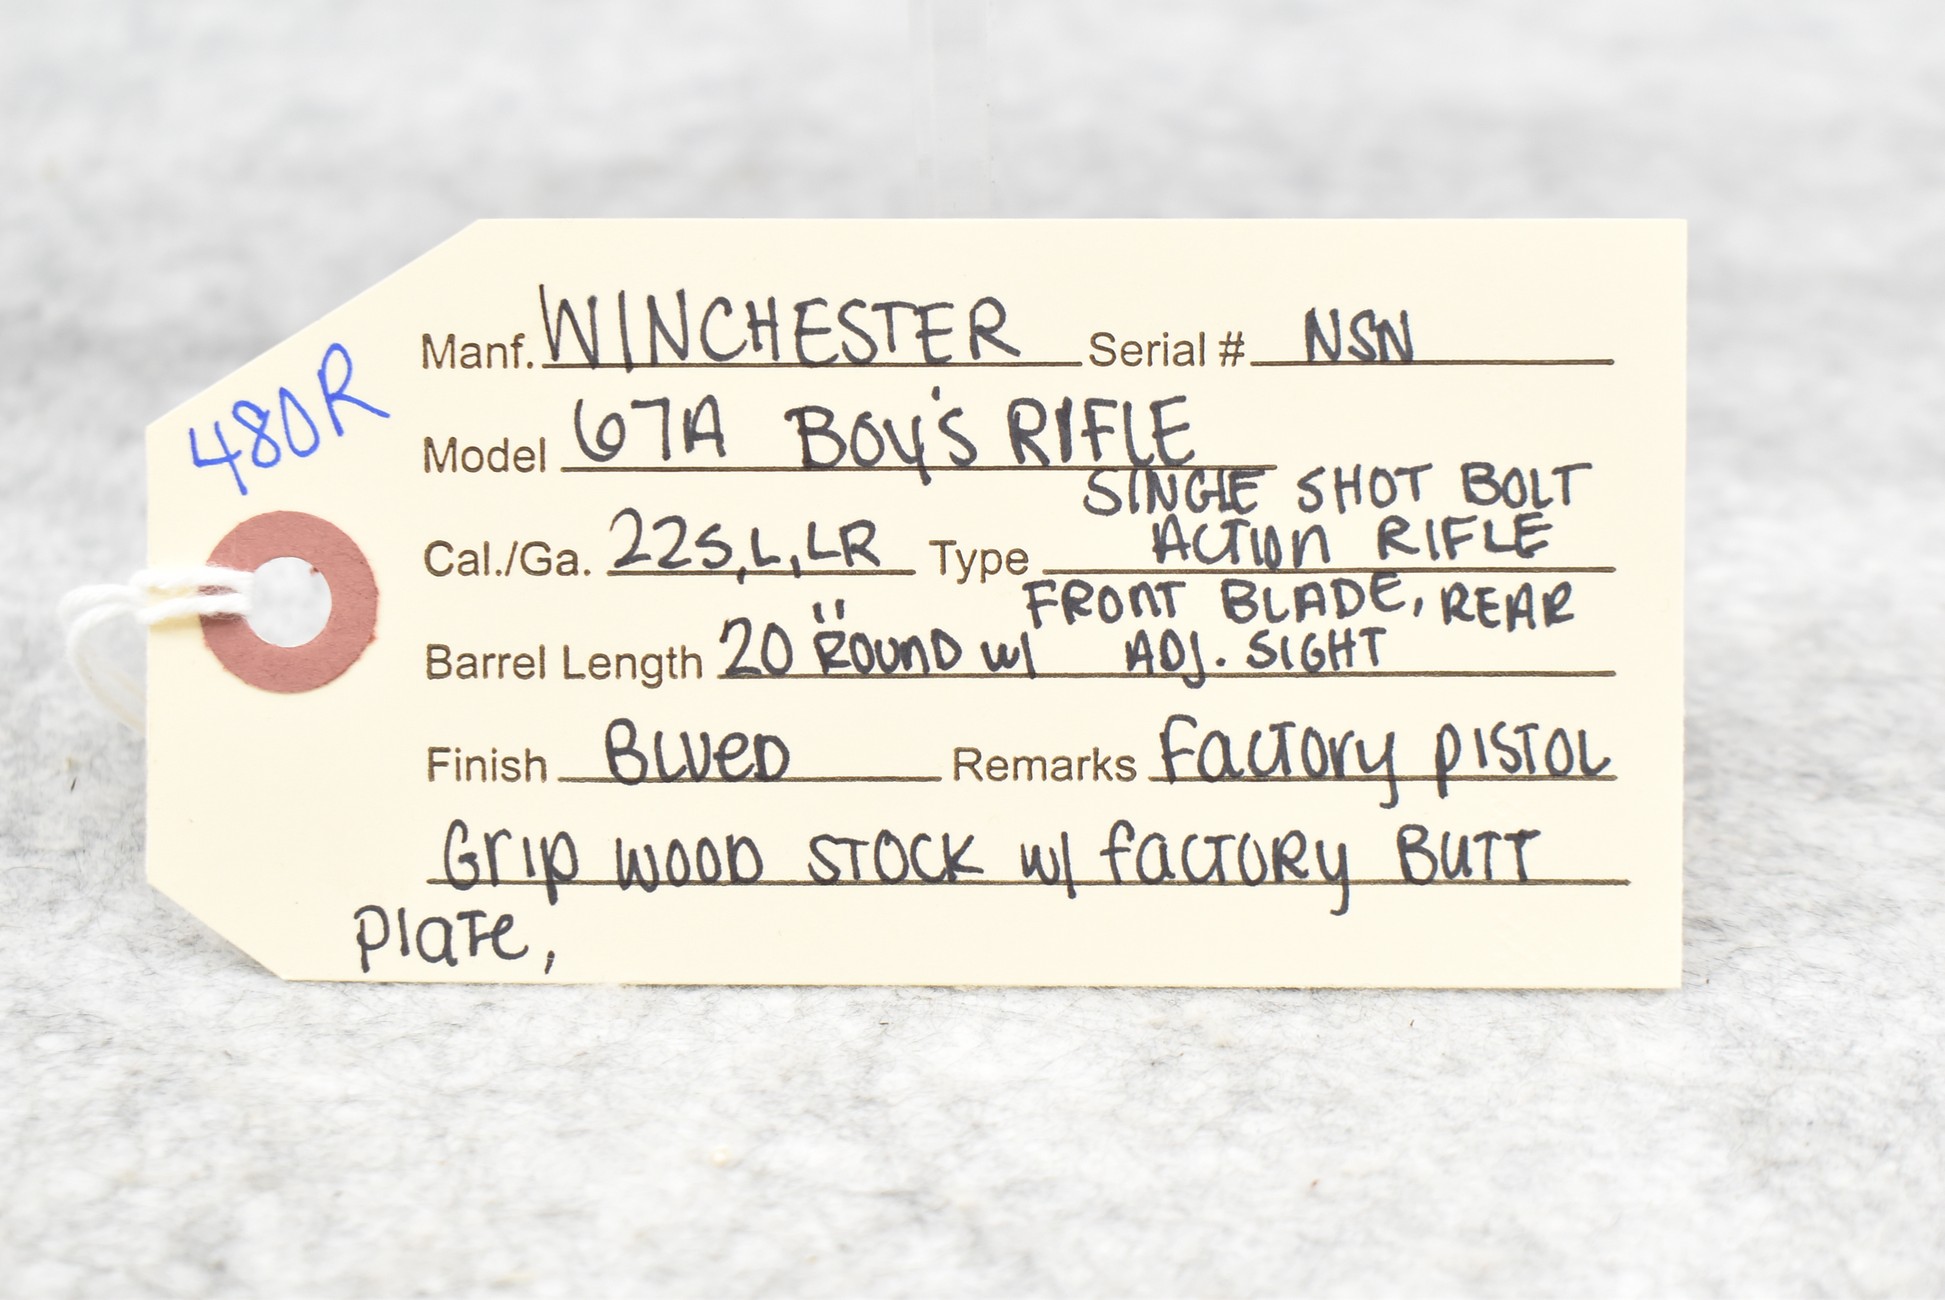 480R
Manf. WINCHESTER Serial # NSN
Model 67A BOY'S RIFLE
SINGLE SHOT BOLT
Cal./Ga. 22S,L,LR Type ACTION RIFLE
FRONT BLADE, REAR
Barrel Length 20" ROUND w/ ADJ. SIGHT
Finish BLUED Remarks Factory PISTOL
Grip WOOD STOCK w/ FACTORY BUTT
Plate,